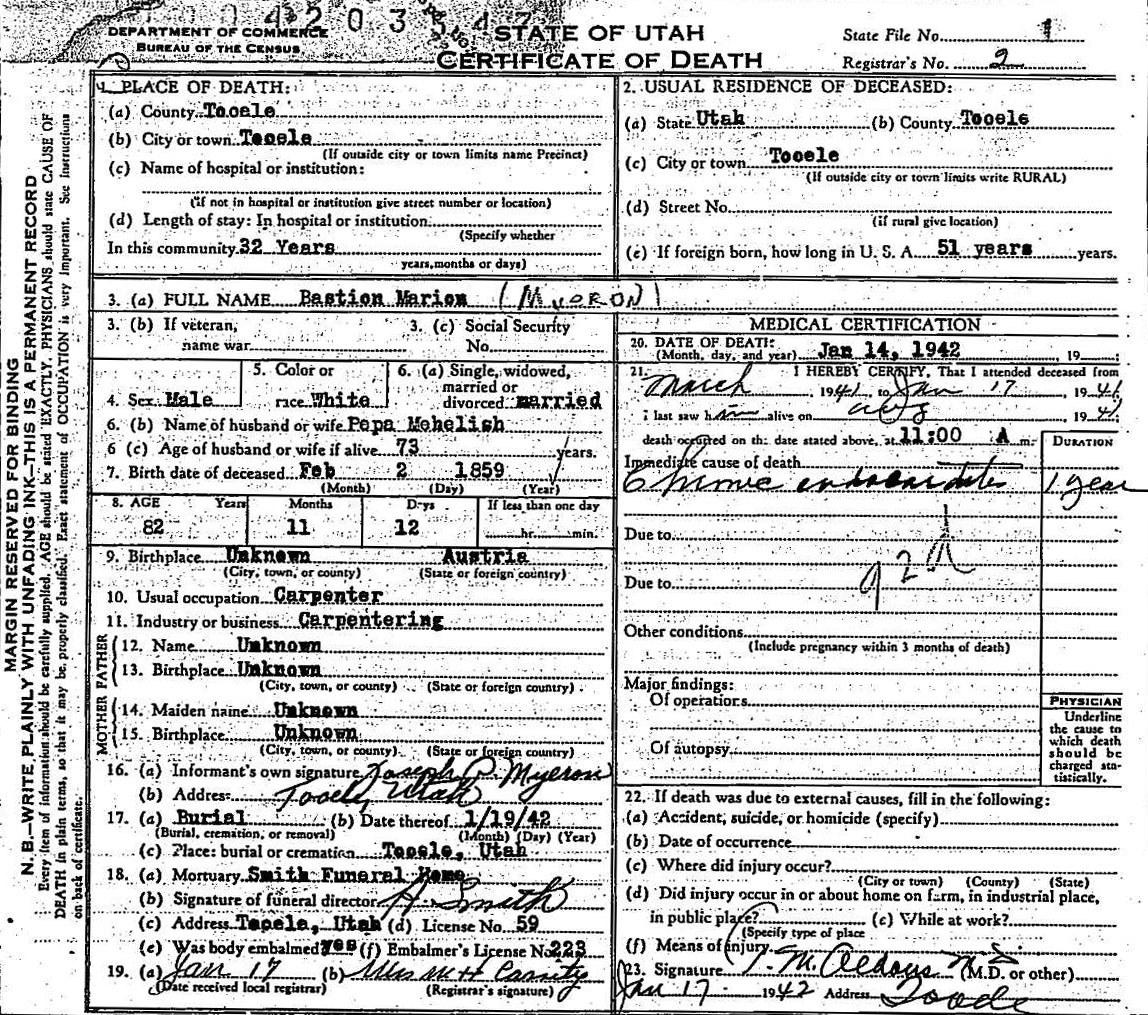 DEPARTMENT OF COMMERCE
BUREAU OF THE CENSUS
STATE OF UTAH
CERTIFICATE OF DEATH
State File No. 1
Registrar's No. 2
MARGIN RESERVED FOR BINDING
N. B.—WRITE PLAINLY WITH UNFADING INK—THIS IS A PERMANENT RECORD
Every item of information should be carefully supplied. AGE should be stated EXACTLY. PHYSICIANS should state CAUSE OF
DEATH in plain terms, so that it may be properly classified. Exact statement of OCCUPATION is very important. See instructions
on back of certificate.
1. PLACE OF DEATH:
(a) County Tooele
(b) City or town Tooele
(If outside city or town limits name Precinct)
(c) Name of hospital or institution:
(if not in hospital or institution give street number or location)
(d) Length of stay: In hospital or institution
(Specify whether
In this community 32 Years
years, months or days)
2. USUAL RESIDENCE OF DECEASED:
(a) State Utah (b) County Tooele
(c) City or town Tooele
(If outside city or town limits write RURAL)
(d) Street No.
(if rural give location)
(e) If foreign born, how long in U. S. A. 51 years years.
3. (a) FULL NAME Bastion Marion (MYERON)
3. (b) If veteran, name war
3. (c) Social Security No.
4. Sex Male
5. Color or race White
6. (a) Single, widowed, married or divorced married
6. (b) Name of husband or wife Pepa Mehelish
6 (c) Age of husband or wife if alive 73 years.
7. Birth date of deceased Feb 2 1859
(Month) (Day) (Year)
8. AGE Years Months Days If less than one day
82 11 12 hr. min.
9. Birthplace Unknown Austria
(City, town, or county) (State or foreign country)
10. Usual occupation Carpenter
11. Industry or business Carpentering
FATHER
12. Name Unknown
13. Birthplace Unknown
(City, town, or county) (State or foreign country)
MOTHER
14. Maiden name Unknown
15. Birthplace Unknown
(City, town, or county) (State or foreign country)
16. (a) Informant's own signature Joseph P. Myeron
(b) Address Tooele, Utah
17. (a) Burial (b) Date thereof 1/19/42
(Burial, cremation, or removal) (Month) (Day) (Year)
(c) Place: burial or cremation Tooele, Utah
18. (a) Mortuary Smith Funeral Home
(b) Signature of funeral director H. Smith
(c) Address Tooele, Utah (d) License No. 59
(e) Was body embalmed yes (f) Embalmer's License No. 223
19. (a) Jan 17 (b) Mrs M H
(Date received local registrar) (Registrar's signature)
MEDICAL CERTIFICATION
20. DATE OF DEATH: Jan 14, 1942 19
(Month, day, and year)
21. I HEREBY CERTIFY, That I attended deceased from
March 1941 to Jan 17 19
I last saw him alive on Aug 1941
death occurred on the date stated above, at 11:00 A m.
DURATION
Immediate cause of death
Chronic endocarditis 1 year
Due to
92d
Due to
Other conditions
(Include pregnancy within 3 months of death)
Major findings:
Of operations
Of autopsy
PHYSICIAN
Underline
the cause to
which death
should be
charged sta-
tistically.
22. If death was due to external causes, fill in the following:
(a) Accident, suicide, or homicide (specify)
(b) Date of occurrence
(c) Where did injury occur?
(City or town) (County) (State)
(d) Did injury occur in or about home on farm, in industrial place,
in public place? (e) While at work?
(Specify type of place
(f) Means of injury
23. Signature T. M. Aldous (M.D. or other)
Jan 17 1942 Address Tooele